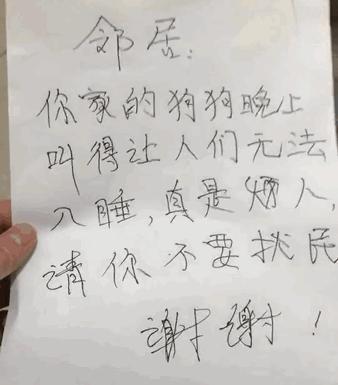 邻居:
你家的狗狗晚上
叫得让人们无法
入睡,真是烦人,
请你不要扰民
谢谢!